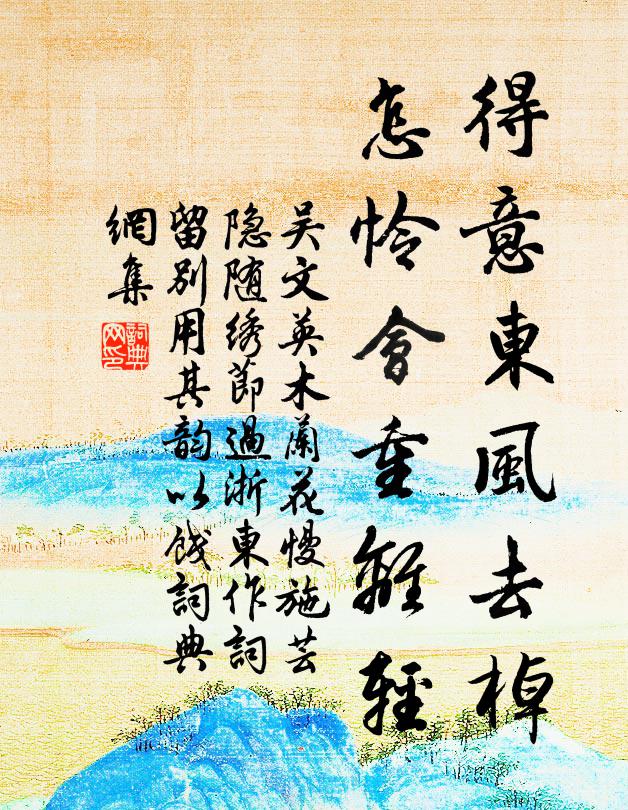 得意東風去棹
怎怜會重離輕
吴文英木蘭花慢施芸
隐随绣節過浙東作詞
留别用其韵以餞詞典
網集
詞典
网印